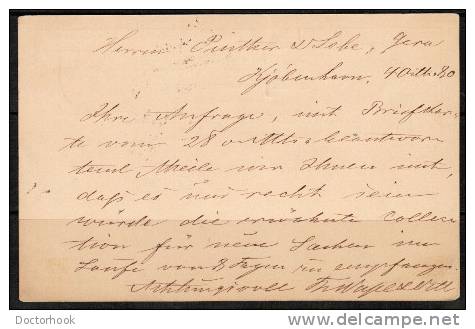 Herren Günther & Sohn, Gera
Kjöbenhavn, 4 Octbr 80
Ihre Anfrage, mit Briefkar-
te vom 28 v. Mts beantwor-
tend theile wir Ihnen mit,
daß es uns recht sein
würde die erwähnte Collec-
tion für neue Sachen im
Laufe von 8 Tagen zu empfangen.
Achtungsvoll
Doctorhook
http://www.delcampe.net